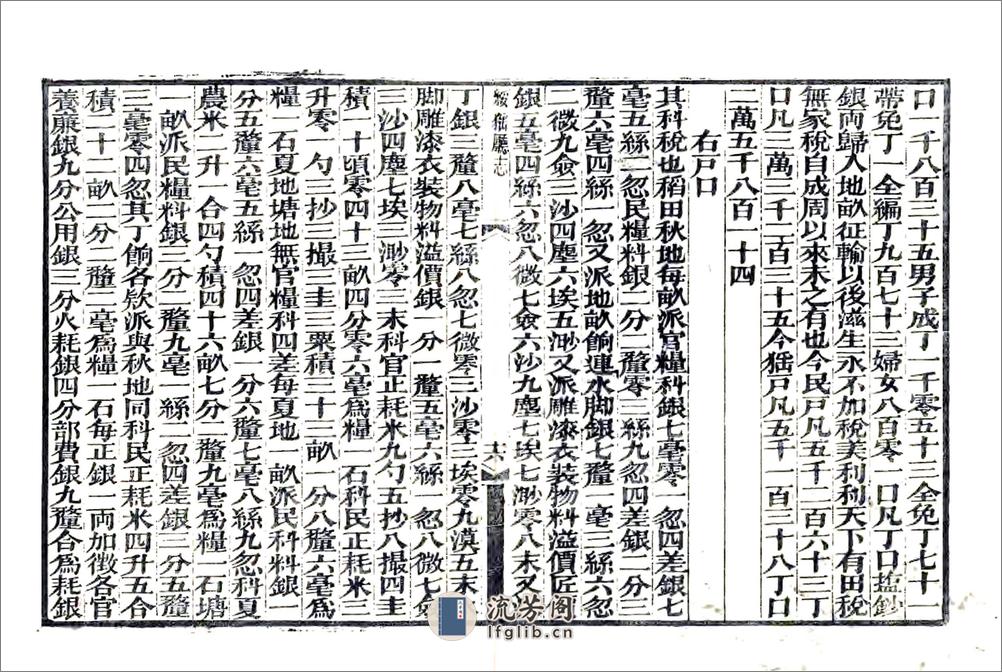 口一千八百三十五男子成丁一千零五十三全免丁七十一
帶免丁一全編丁九百七十三婦女八百零一口凡丁口鹽鈔
銀両歸人地畝征輸以後滋生永不加稅美利利天下有田稅
無家稅自成周以來未之有也今民戸凡五千二百六十三丁
口凡二萬二千二百三十五今猺戸凡五千一百二十八丁口
二萬五千八百一十四
右戸口
其科稅也稻田秋地每畝派官糧科銀七毫零一忽四差銀七
毫五絲二忽民糧料銀二分二釐零三絲九忽四差銀二分三
釐六毫四絲一忽又派地畝餉連水脚銀七釐一毫三絲六忽
二微九僉三沙四塵六埃五渺又派雕漆衣裝物料溢價匠
銀五毫四絲六忽八微七僉六沙九塵七埃七渺零八末又
綏猺廳志
六
丁銀三釐八毫七絲八忽七微零三沙零二埃零九漠五末
脚雕漆衣裝物料溢價銀一分一釐五毫六絲一忽八微七僉
三沙四塵七埃三渺零二末科官正耗米九勺五抄八撮四圭
積一十頃零四十三畝四分零六毫爲糧一石科民正耗米三
升零一勺三抄三撮三圭三粟積三十三畝一分八釐六毫爲
糧一石夏地塘地無官糧科四差每夏地一畝派民科料銀一
分五釐六毫五絲一忽四差銀一分六釐七毫八絲九忽科夏
農米一升一合四勺積四十六畝七分二釐九毫爲糧一石塘
一畝派民糧料銀三分二釐九毫一絲二忽四差銀三分五釐
三毫零四忽其丁餉各欵派與秋地同科民正耗米四升五合
積二十二畝二分二釐二毫爲糧一石每正銀一両加徵各官
養廉銀九分公用銀三分火耗銀四分部費銀九釐合爲耗銀
流芳阁
lfglib.cn